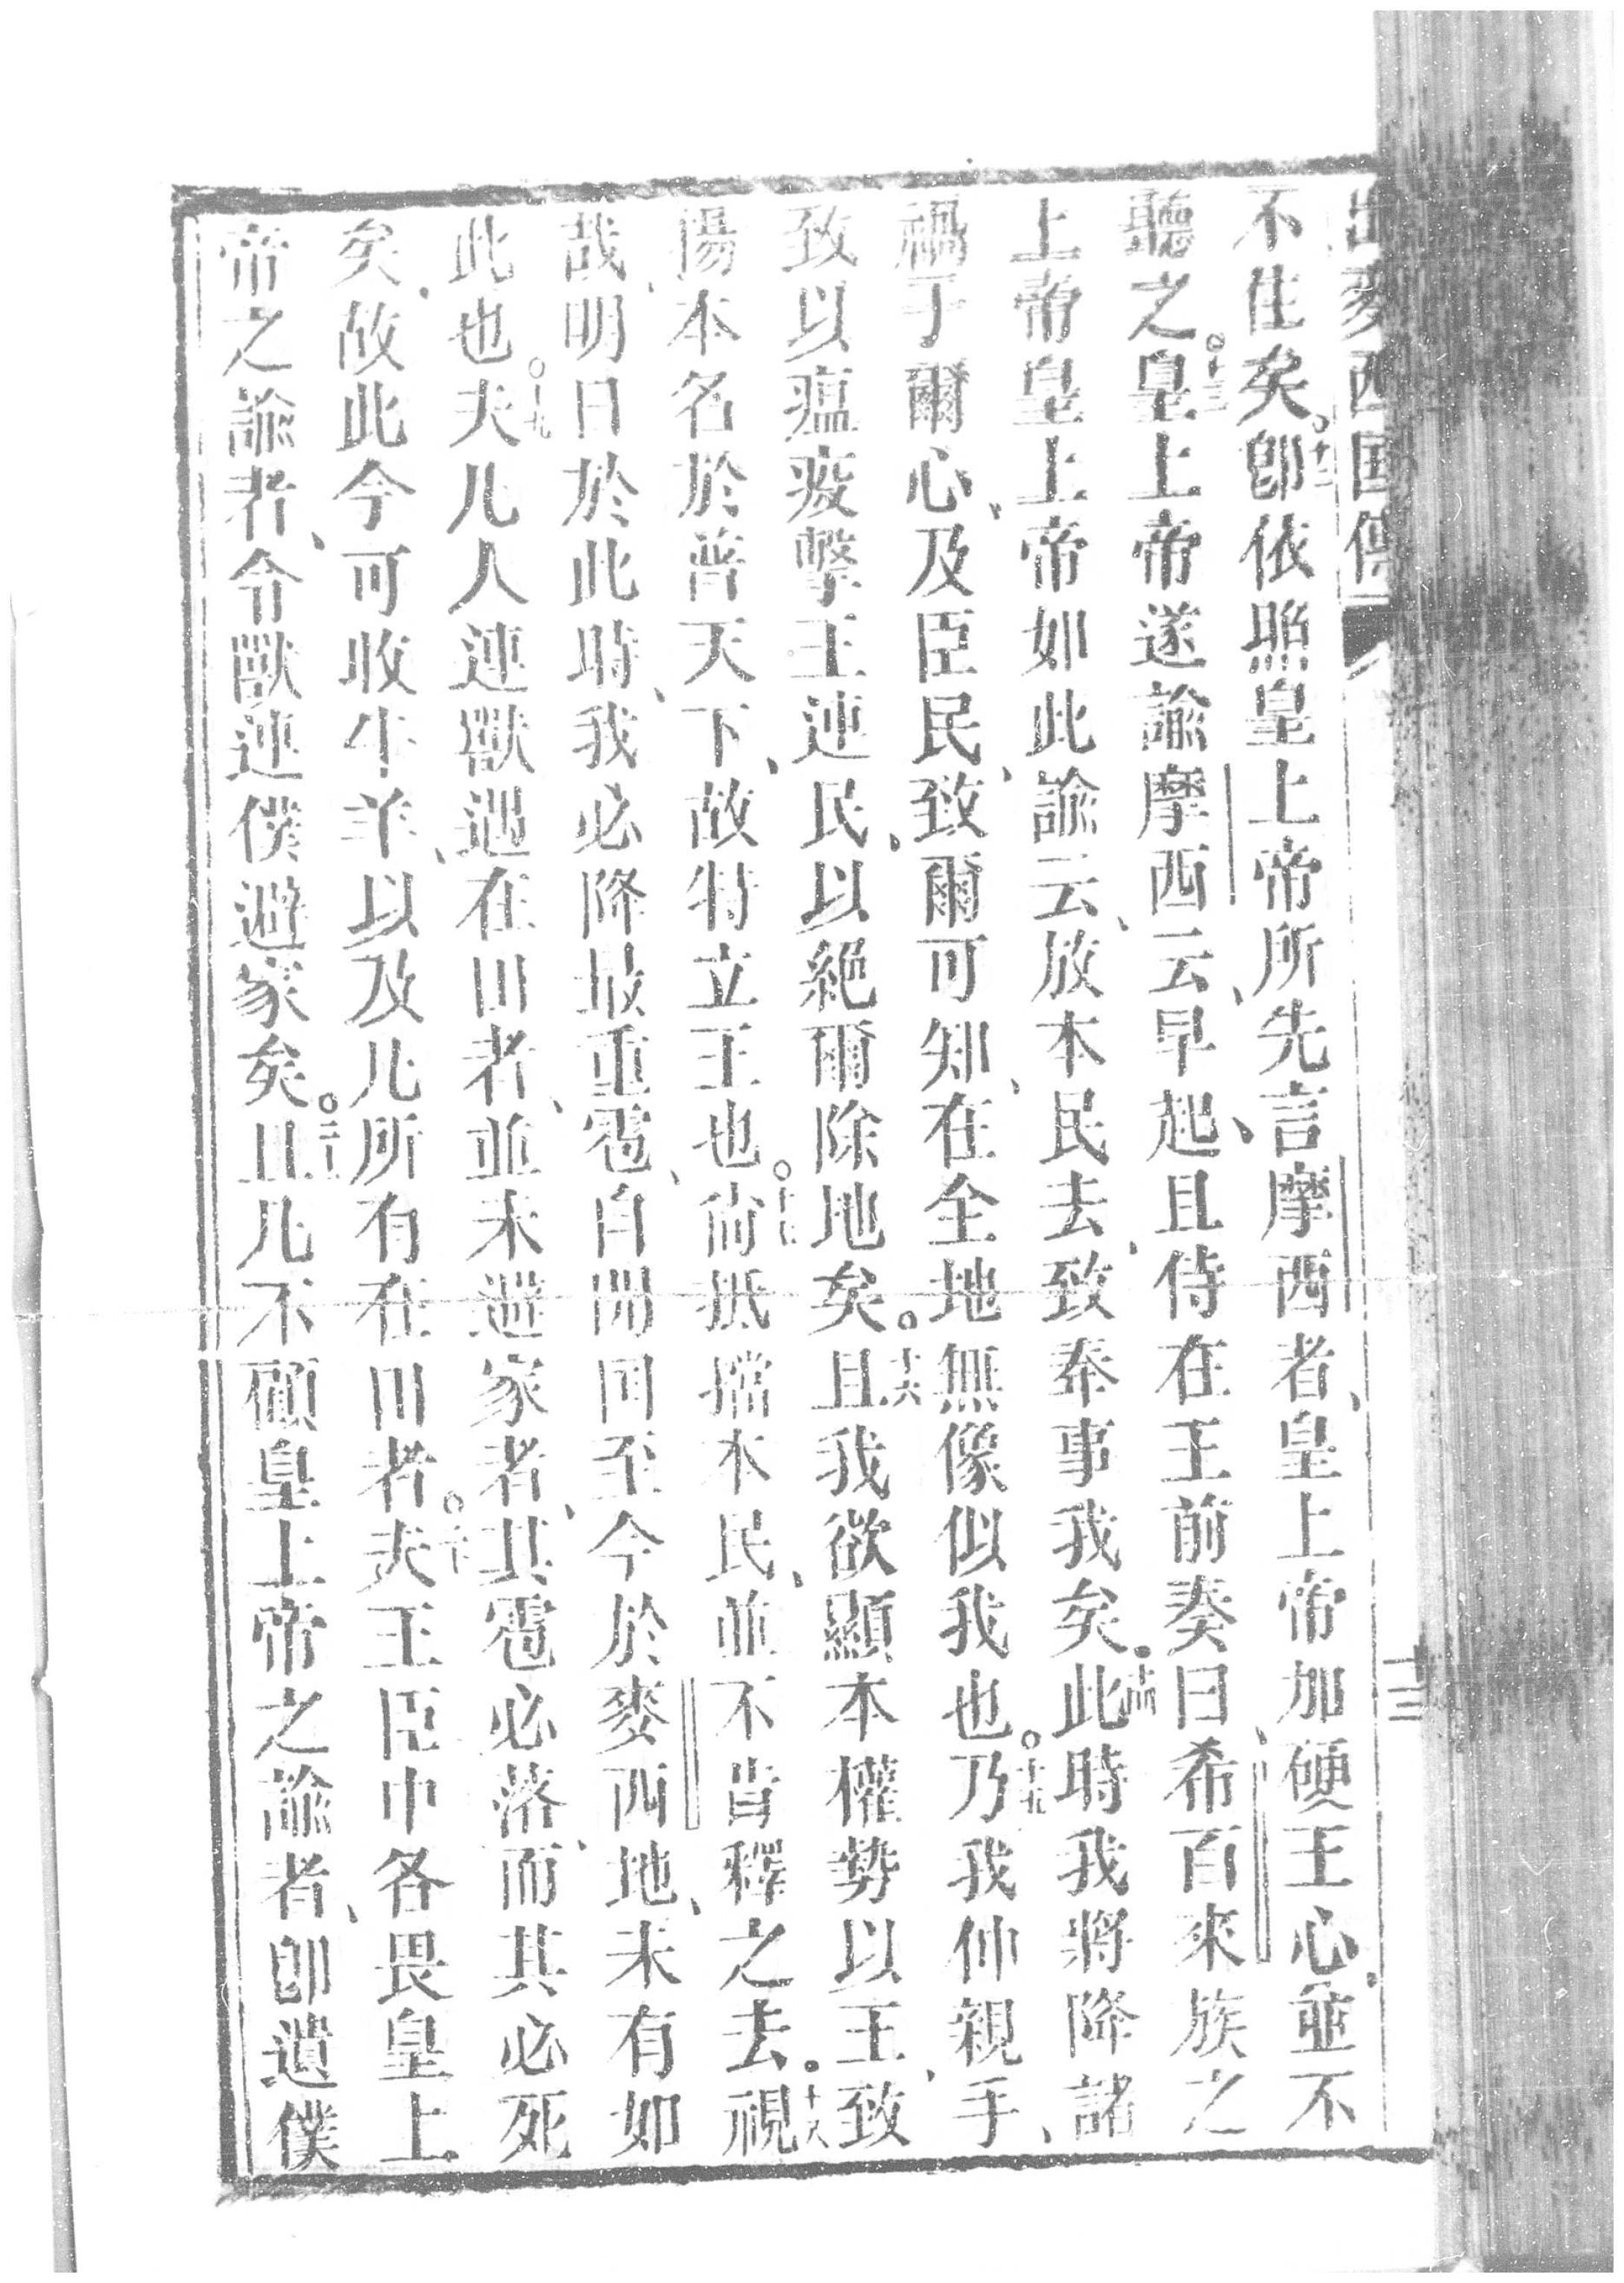 出麥西國傳
十三
不住矣。十二卽依照皇上帝所先言摩西者、皇上帝加硬王心、並不
聽之。十三皇上帝遂諭摩西云、早起、且侍在王前奏曰、希百來族之
上帝皇上帝如此諭云、放本民去、致奉事我矣。十四此時我將降諸
禍于爾心、及臣民、致爾可知、在全地無像似我也。十五乃我伸親手、
致以瘟疫擊王連民、以絕爾除地矣。十六且我欲顯本權勢以王、致
陽本名於普天下、故特立王也。十七尙抵擋本民、並不肯釋之去。十八視
哉、明日於此時、我必降最重雹、自開囯至今於麥西地、未有如
此也。十九夫凡人連獸遇在田者、並未避家者、其雹必落、而其必死
矣、故此今可收牛羊、以及凡所有在田者。二十夫王臣中各畏皇上
帝之諭者、令獸連僕避家矣。二一且凡不顧皇上帝之諭者、卽遺僕